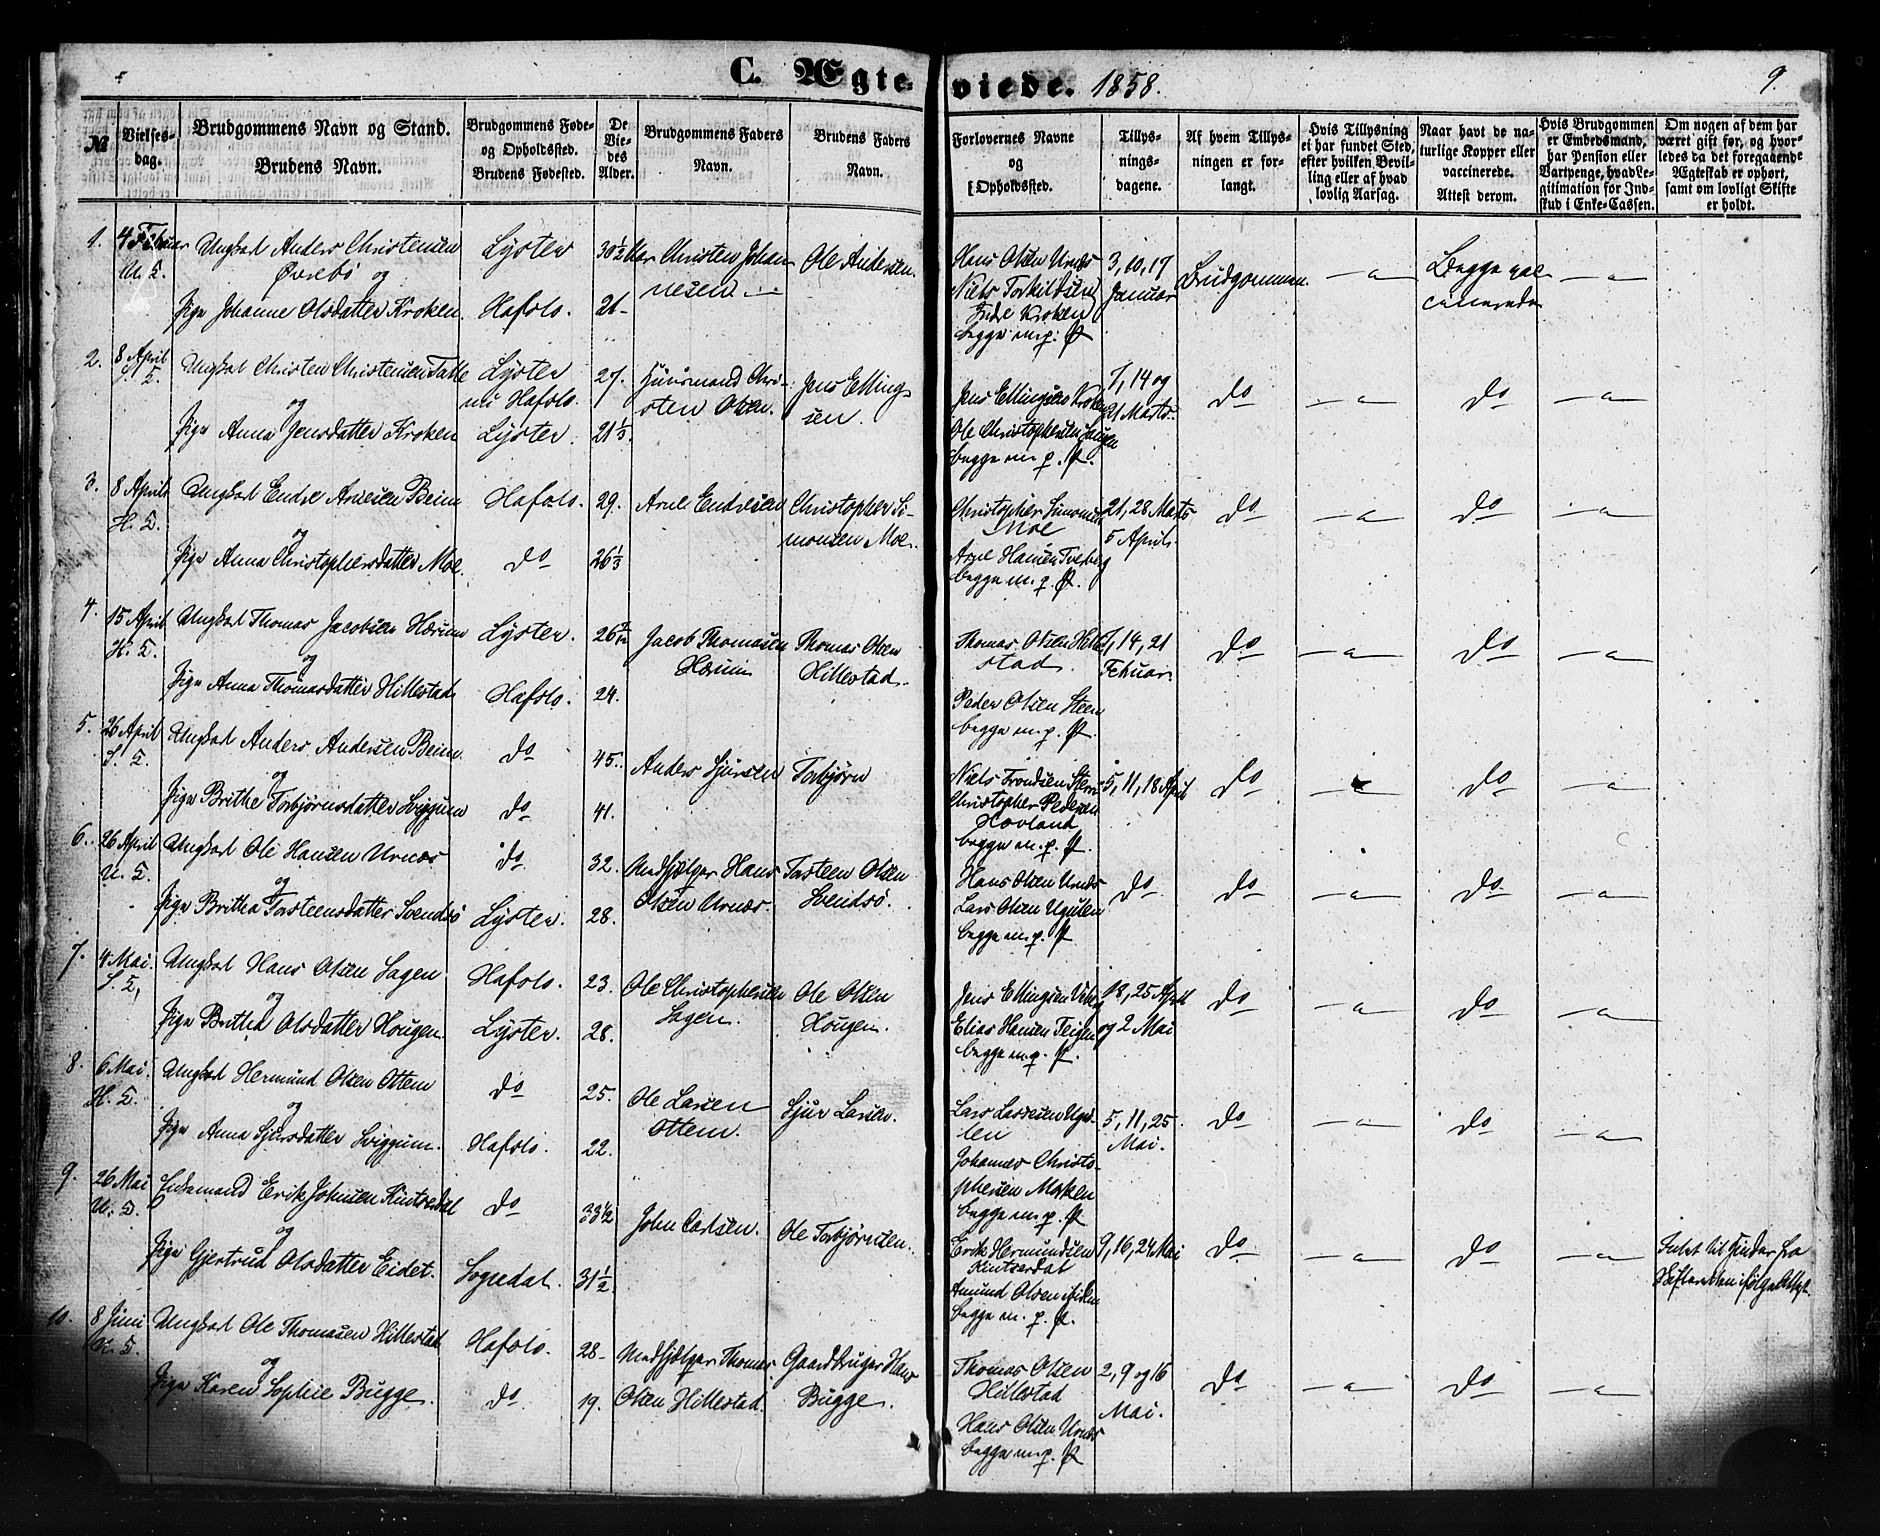 C. Ægteviede. 1858. 9.
№
Vielsesdag.
Brudgommens Navn og Stand.
Brudens Navn.
Brudgommens Føde- og Opholdssted.
Brudens Fødested.
De Viedes Alder.
Brudgommens Faders Navn.
Brudens Faders Navn.
Forlovernes Navne og Opholdssted.
Tillysningsdagene.
Af hvem Tillysningen er forlangt.
Hvis Tillysning ei har fundet Sted, efter hvilken Bevilling eller af hvad lovlig Aarsag.
Naar havt de naturlige Kopper eller vaccinerede. Attest derom.
Hvis Brudgommen er Embedsmand, har Pension eller Vartpenge, hvad Legitimation for Indskud i Enke-Cassen.
Om nogen af dem har været gift før, og hvorledes da det foregaaende Ægteskab er ophørt, samt om lovligt Skifte er holdt.
1. 4 Februar U. S. Ungkarl Anders Christensen Øvrebø og Lyster 30½ Aar Christen Johannesen Ole Andersen.
Pige Johanne Olsdatter Kroken. Hafslo. 21
Hans Olsen Urnæs Niels Torkildsen Indre Kroken begge m. p. P. 3, 10, 17 Januar Brudgommen Begge vaccinerede
2. 8 April S. S. Ungkarl Christen Christensen og Lyster Hafslo. 27. Huusmand Christen Olsen. Jens Ellingsen.
Pige Anna Jensdatter Kroken Lyster. 21⅓
Jens Ellingsen Kroken Ole Christophersen begge m. p. P. 7, 14 og 21 Marts. do do
3. 8 April H. S. Ungkarl Endre Arnesen Beim og Hafslo. 29. Arne Endresen Christopher Simonsen Moe.
Pige Anna Christophersdatter Moe. do 26⅓
Christopher Simonsen Moe Arne Hansen begge m. p. P. 21, 28 Marts 5 April. do do
4. 15 April H. S. Ungkarl Thomas Jacobsen Hærum og Lyster. 26 Jacob Thomasen Hærum Thomas Olsen Hillestad.
Pige Anna Thomasdatter Hillestad Hafslo. 24.
Thomas Olsen Hillestad. Peder Olsen Steen begge m. p. P. 7, 14, 21 Februar do do
5. 26 April S. S. Ungkarl Anders Andersen Beim og do 45. Anders Sjursen Torbjørn
Pige Brithe Torbjørnsdatter Sviggum do. 41.
Niels Trondsen Christopher Pedersen Hovland begge m. p. P. 5, 11, 18 April do do
6. 26 April U. S. Ungkarl Ole Hansen Urnæs og do. 32. Medhjælper Hans Olsen Urnæs. Torsteen Olsen Svendsø.
Pige Britha Torsteensdatter Svendsø Lyster. 28.
Hans Olsen Urnæs Lars Olsen Ugulen begge m. p. P. do do do
7. 4 Mai. S. S. Ungkarl Hans Olsen Lagen og Hafslo. 23. Ole Christophersen Lagen. Ole Olsen Hougen.
Pige Britha Olsdatter Hougen. Lyster. 28.
Jens Ellingsen Elias Hansen Teigen begge m. p. P. 18, 25 April og 2 Mai do do
8. 6 Mai. H. S. Ungkarl Hermund Olsen Ottem og do 25. Ole Larsen Ottem. Sjur Larsen.
Pige Anna Sjursdatter Sviggum. Hafslo. 22.
Lars Lassesen Ugulen Johannes Christophersen begge m. p. P. 5, 11, 25 Mai. do do
9. 26 Mai U. S. Enkemand Erik Johnsen Kintsedal og do 33½ John Carlsen. Ole Torbjørnsen.
Pige Gjertrud Olsdatter Eidet. Sogndal. 31½
Erik Hermundsen Kintsedal Amund Olsen begge m. p. P. 9, 16, 24 Mai do do Intet til Hinder fra Skifteretten ifølge Attest.
10. 8 Juni U. S. Ungkarl Ole Thomasen Hillestad og Hafslo. 28 Medhjælper Thomas Olsen Hillestad. Gaardbruger Hans Bugge.
Pige Karen Sophie Bugge. do. 19.
Thomas Olsen Hillestad Hans Olsen Urnæs begge m. p. P. 2, 9 og 16 Mai. do do